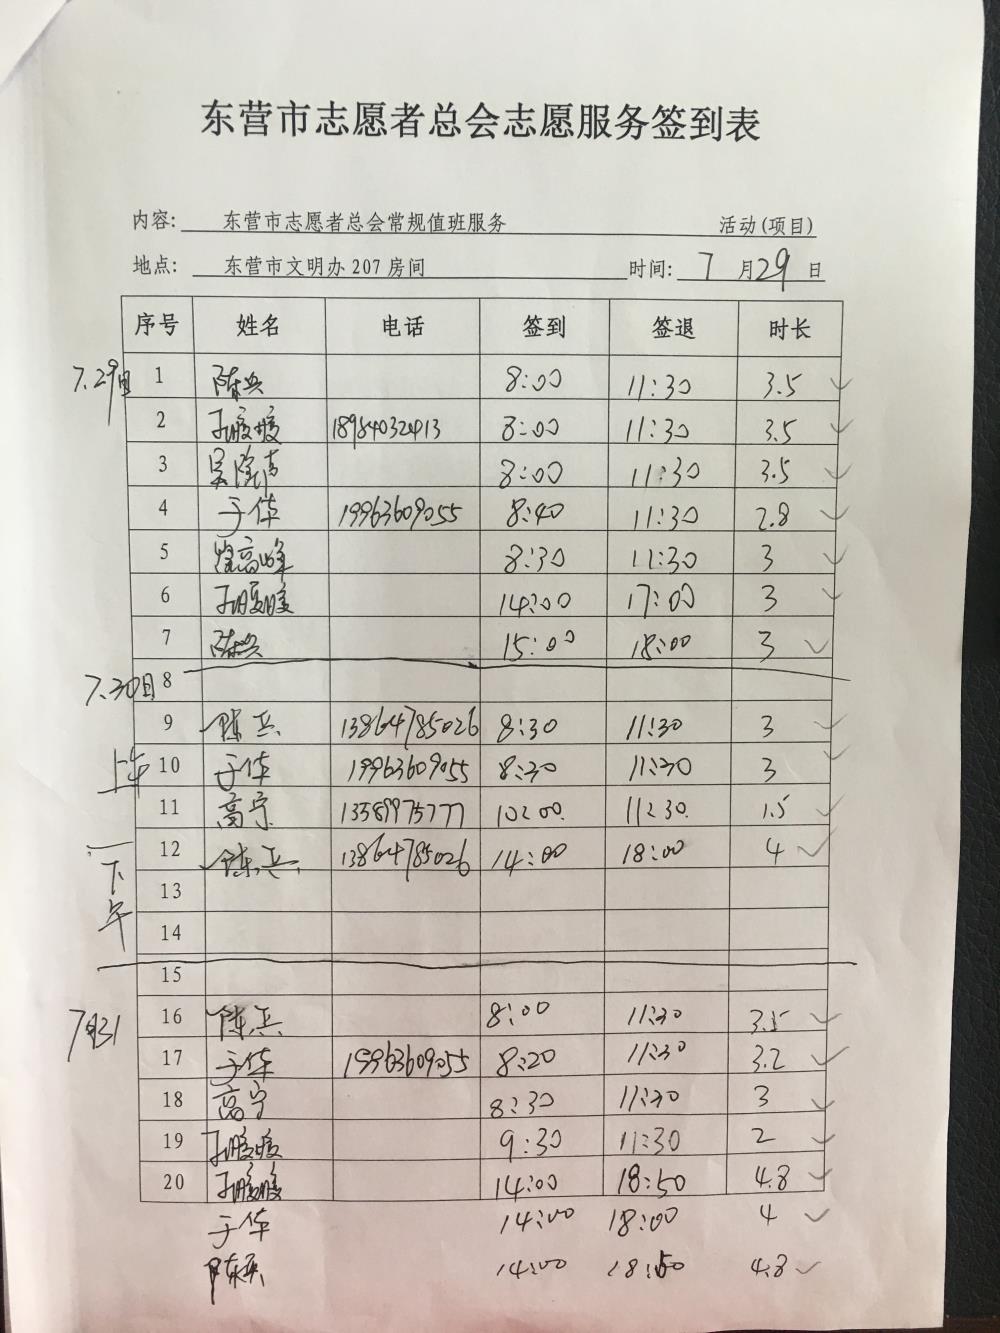 东营市志愿者总会志愿服务签到表
内容: 东营市志愿者总会常规值班服务 活动(项目)
地点: 东营市文明办 207 房间 时间: 7 月 29 日
序号 姓名 电话 签到 签退 时长
7.29日 1 陈兵 8:00 11:30 3.5
2 18954032413 8:00 11:30 3.5
3 8:00 11:30 3.5
4 于华 19963609055 8:40 11:30 2.8
5 高峰 8:30 11:30 3
6 14:00 17:00 3
7 陈兵 15:00 18:00 3
7.30日 8
9 陈兵 13864785026 8:30 11:30 3
上午 10 于华 19963609055 8:30 11:30 3
11 高宁 13589975777 10:00 11:30 1.5
12 陈兵 13864785026 14:00 18:00 4
下午 13
14
15
7月31 16 陈兵 8:00 11:30 3.5
17 于华 19963609055 8:20 11:30 3.2
18 高宁 8:30 11:30 3
19 9:30 11:30 2
20 14:00 18:50 4.8
于华 14:00 18:00 4
陈兵 14:00 18:50 4.8